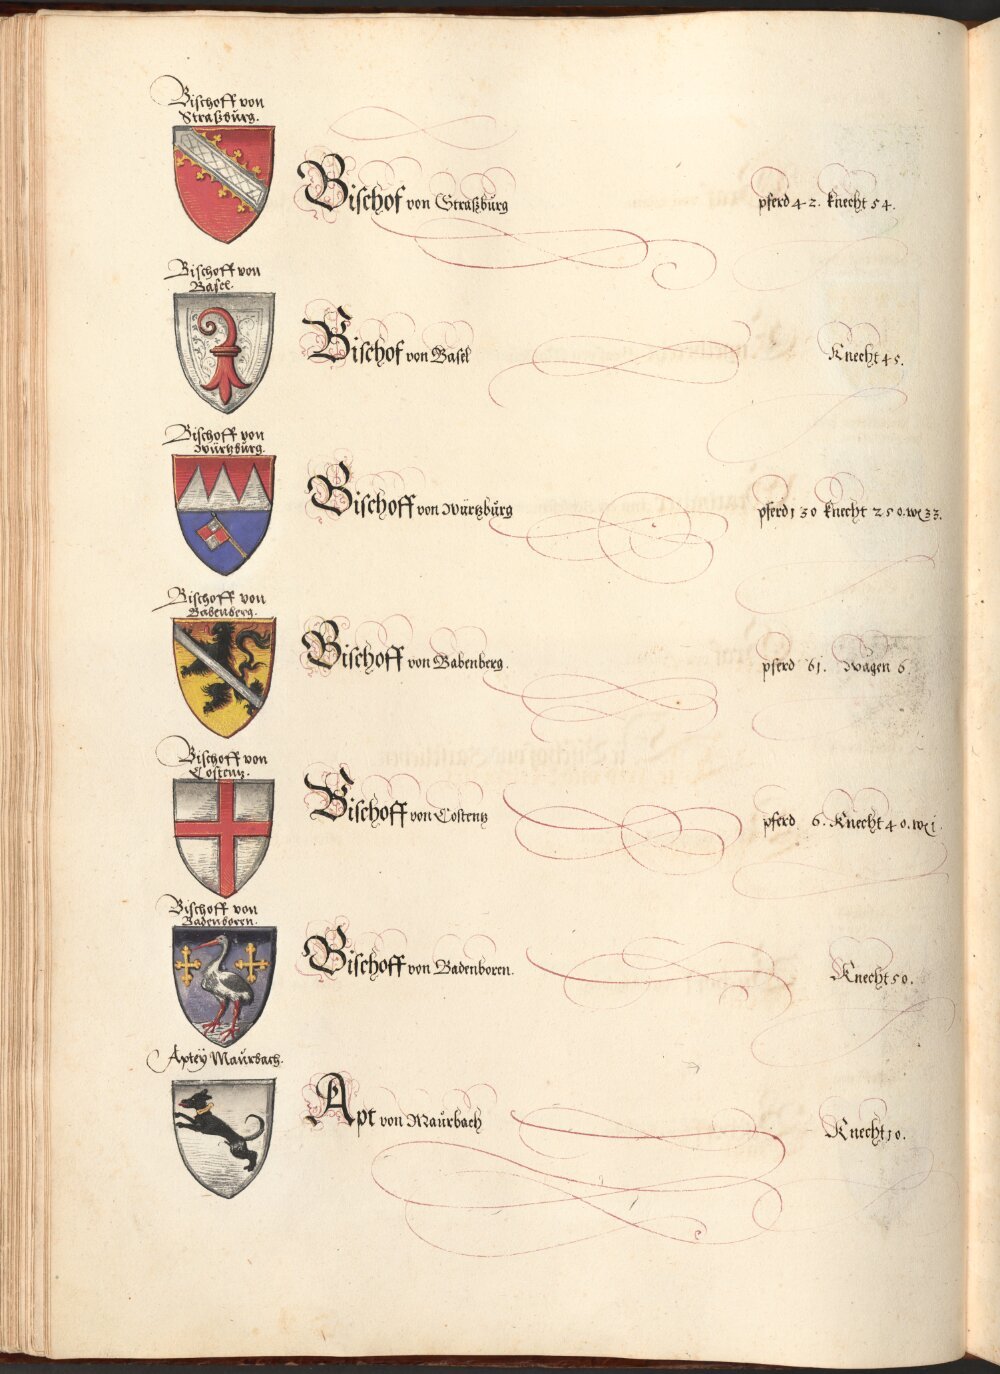 Bischoff von
Straßburg.
Bischof von Straßburg pferd 42. knecht 54.
Bischoff von
Basel.
Bischof von Basel Knecht 45.
Bischoff von
Würtzburg.
Bischoff von Würtzburg pferd 130 knecht 250. w
Bischoff von
Babenberg.
Bischoff von Babenberg. pferd 61. Wägen 6.
Bischoff von
Costentz.
Bischoff von Costentz pferd 6. Knecht 40. w
Bischoff von
Badenboren.
Bischoff von Badenboren. Knecht 50.
Aptey Maurbach.
Apt von Maurbach Knecht 10.